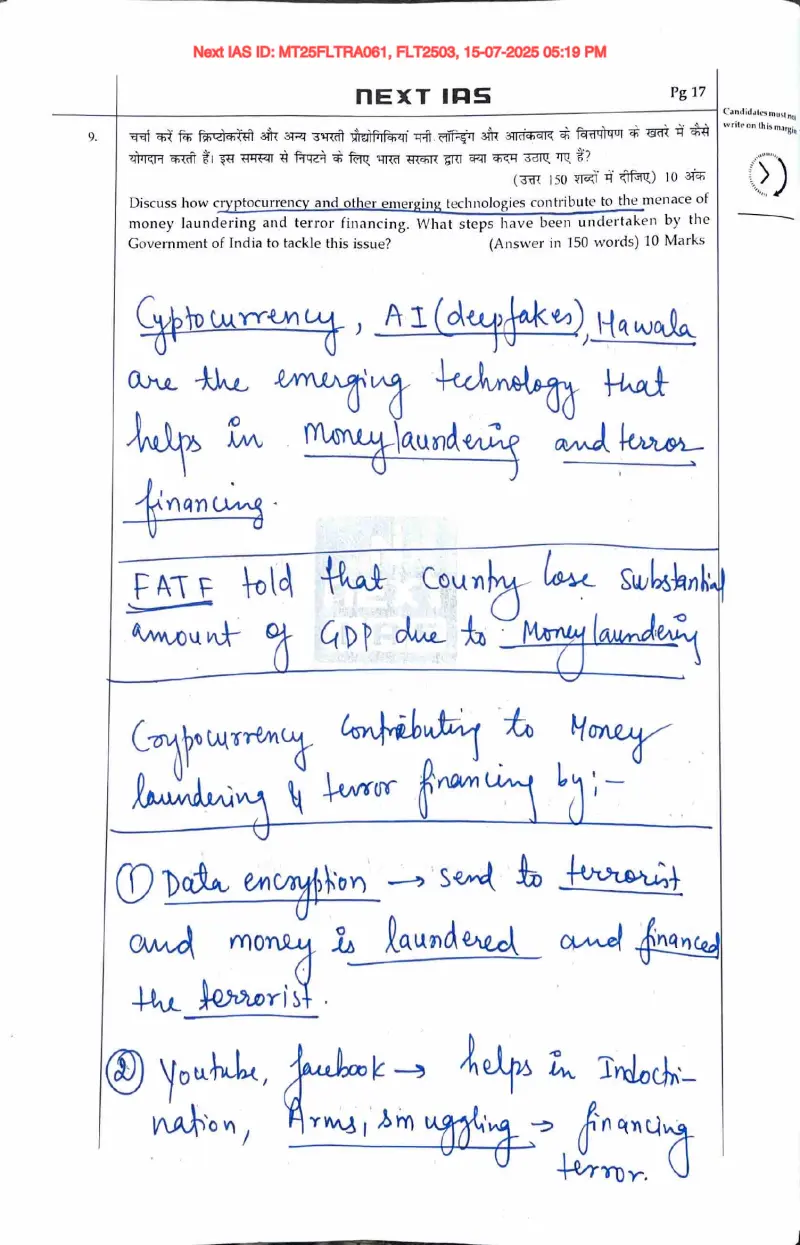 Next IAS ID: MT25FLTRA061, FLT2503, 15-07-2025 05:19 PM
NEXT IAS
Pg 17
Candidates must not
write on this margin
9. चर्चा करें कि क्रिप्टोकरेंसी और अन्य उभरती प्रौद्योगिकियां मनी लॉन्ड्रिंग और आतंकवाद के वित्तपोषण के खतरे में कैसे
योगदान करती हैं। इस समस्या से निपटने के लिए भारत सरकार द्वारा क्या कदम उठाए गए हैं?
(उत्तर 150 शब्दों में दीजिए) 10 अंक
Discuss how cryptocurrency and other emerging technologies contribute to the menace of
money laundering and terror financing. What steps have been undertaken by the
Government of India to tackle this issue? (Answer in 150 words) 10 Marks
Cyptocurrency, AI (deepfakes), Hawala
are the emerging technology that
helps in Money laundering and terror
financing.
FATF told that Country lose substantial
amount of GDP due to Money laundering
Crypocurrency Contributing to Money
laundering & terror financing by;-
① Data encryption → send to terrorist
and money is laundered and financed
the terrorist.
② Youtube, facebook → helps in Indoctri-
nation, Arms, smuggling → financing
terror.